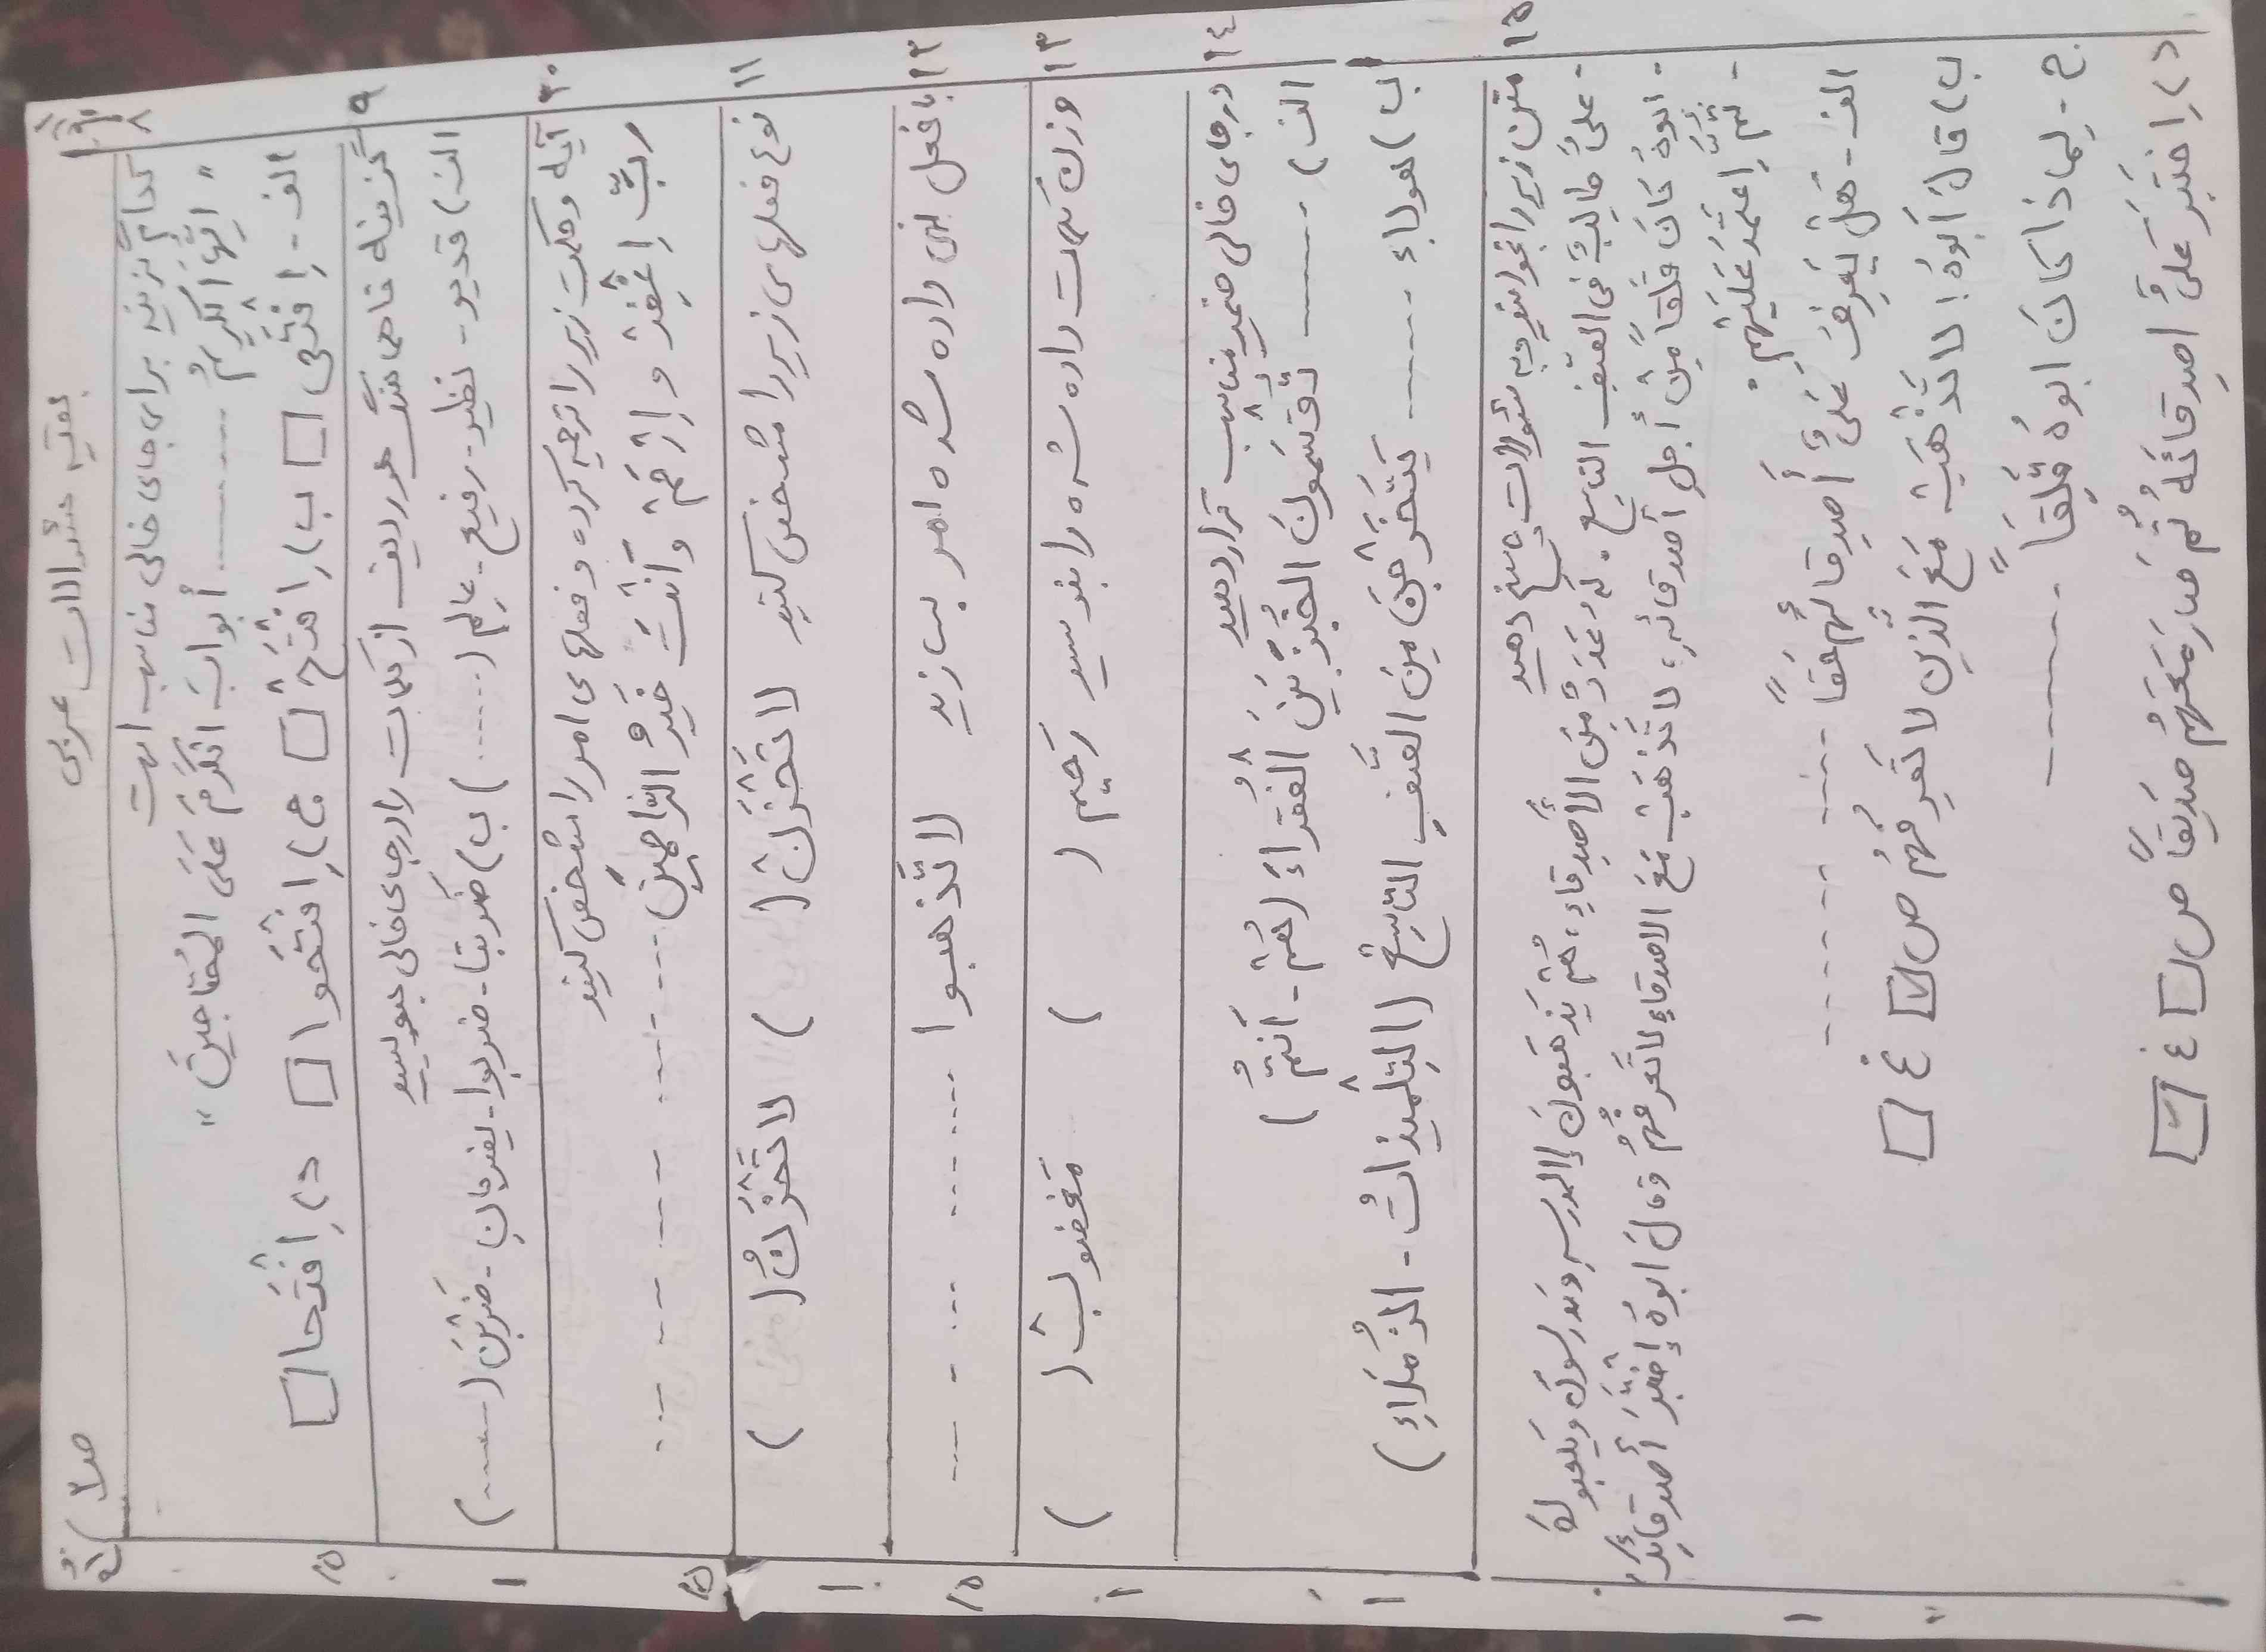 بقیه سئوالات عربی
ص۲
۸
کدام گزینه برای جای خالی مناسب است
" ایتها الکریمُ ........ أبوابَ الکَرَمِ عَلَی المُحتاجینَ "
الف- اِفتَحی □ ب) اِفتَحْ □ ج) اِفتَحوا □ د) اِفتَحا □
۹
گزینه ناهماهنگ هر ردیف از کلمات را در جای خالی بنویسید
الف) قدیر- نظیر- رفیع- عالِم (......) ب) ضَربتا- ضربوا- یَضربانِ- ضَرَبْنَ (......)
۱۰
آیه و حکمت زیر را ترجمه کرده و فعلهای امر را مشخص کنید
ربِّ اِغْفِرْ و اِرْحَمْ وَ أنْتَ خَیرُ الرّاحِمینَ ........
۱۱
نوع فعلهای زیر را مشخص کنید لا تَحْزَنْ ( ) لا تَحْزَنُ ( )
۱۲
با فعل نهی داده شده امر بسازید لا تَذهبوا ........
۱۳
وزن کلمات داده شده را بنویسید رَحیم ( ) مَغضوبْ ( )
۱۴
در جای خالی ضمیر مناسب قرار دهید
الف) ........ تُقَسِّمونَ الخُبْزَ بَینَ الْفُقَراءَ (هُمْ- أنتُمْ)
ب) هولاء ........ یَتَخَرَّجْنَ مِنَ الصَّفِ التاسِعِ (التِلْمیذاتُ- الزُمَلاءِ)
۱۵
متن زیر را بخوانید و به سئوالات پاسخ دهید
- علیٌ طالِبٌ فی الصّف التاسع. لَهُ عَدَدٌ مِنَ الأصدِقاءِ، هُمْ یَذهَبونَ إلی المدرسه و یَدرسونَ و یَلعبونَ
- ابوهُ کانَ قَلقاً مِنْ أجلِ أصدقائهِ، لا تَذهَبْ مَعَ الاصدقاءِ لا تَعرفُهُمْ و قالَ ابوهُ إخْتَبِرْ أصدقائِکَ
- ثُمَّ إعتَمِدْ عَلَیْهِمْ
الف- هَلْ یَعرِفُ عَلیٌّ أصدِقائَهُمْ حَقاً ........
ب) قالَ أبوهُ: لا تَذْهَبْ مَعَ الَّذین لا تَعرِفُهُمْ ص ☑ غ □
ج- لِماذا کانَ ابوهُ قَلِقاً ........
د) اِختَبَرَ عَلیٌّ اصدِقائَهُ ثُم صارَ مَعَهُم صَدیقاً ص □ غ ☑